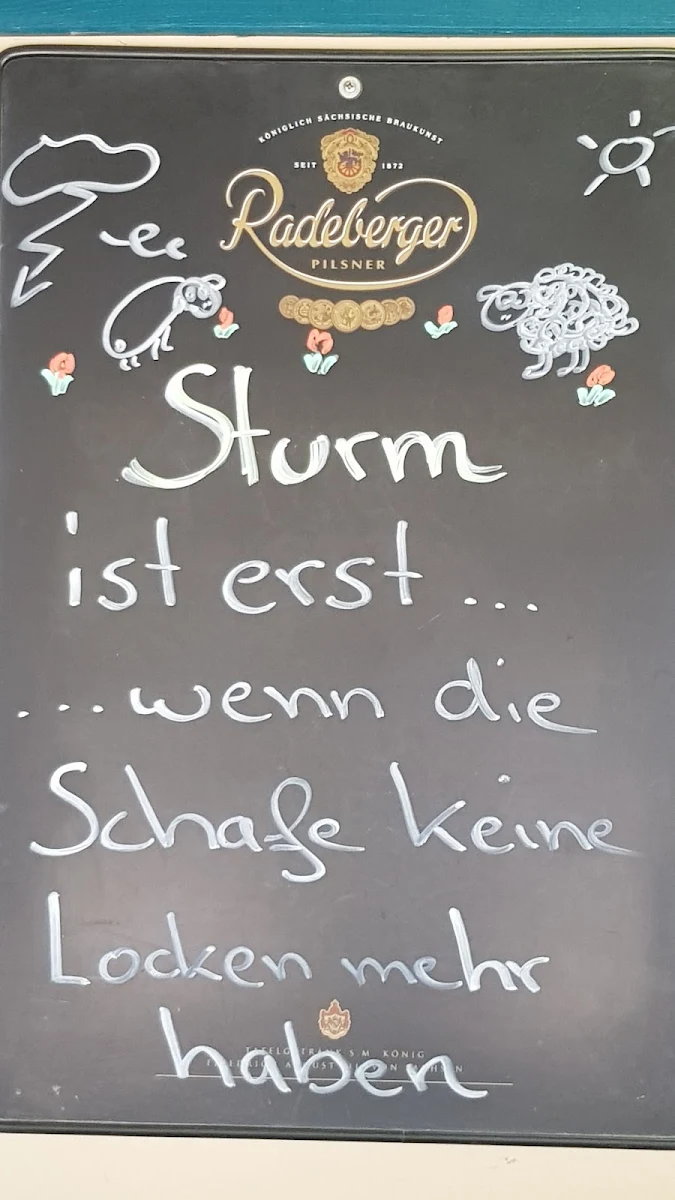 KÖNIGLICH SÄCHSISCHE BRAUKUNST
SEIT 1872
Radeberger
PILSNER
Sturm
ist erst ...
... wenn die
Schafe keine
Locken mehr
haben
TAFELGETRÄNK S.M. KÖNIG